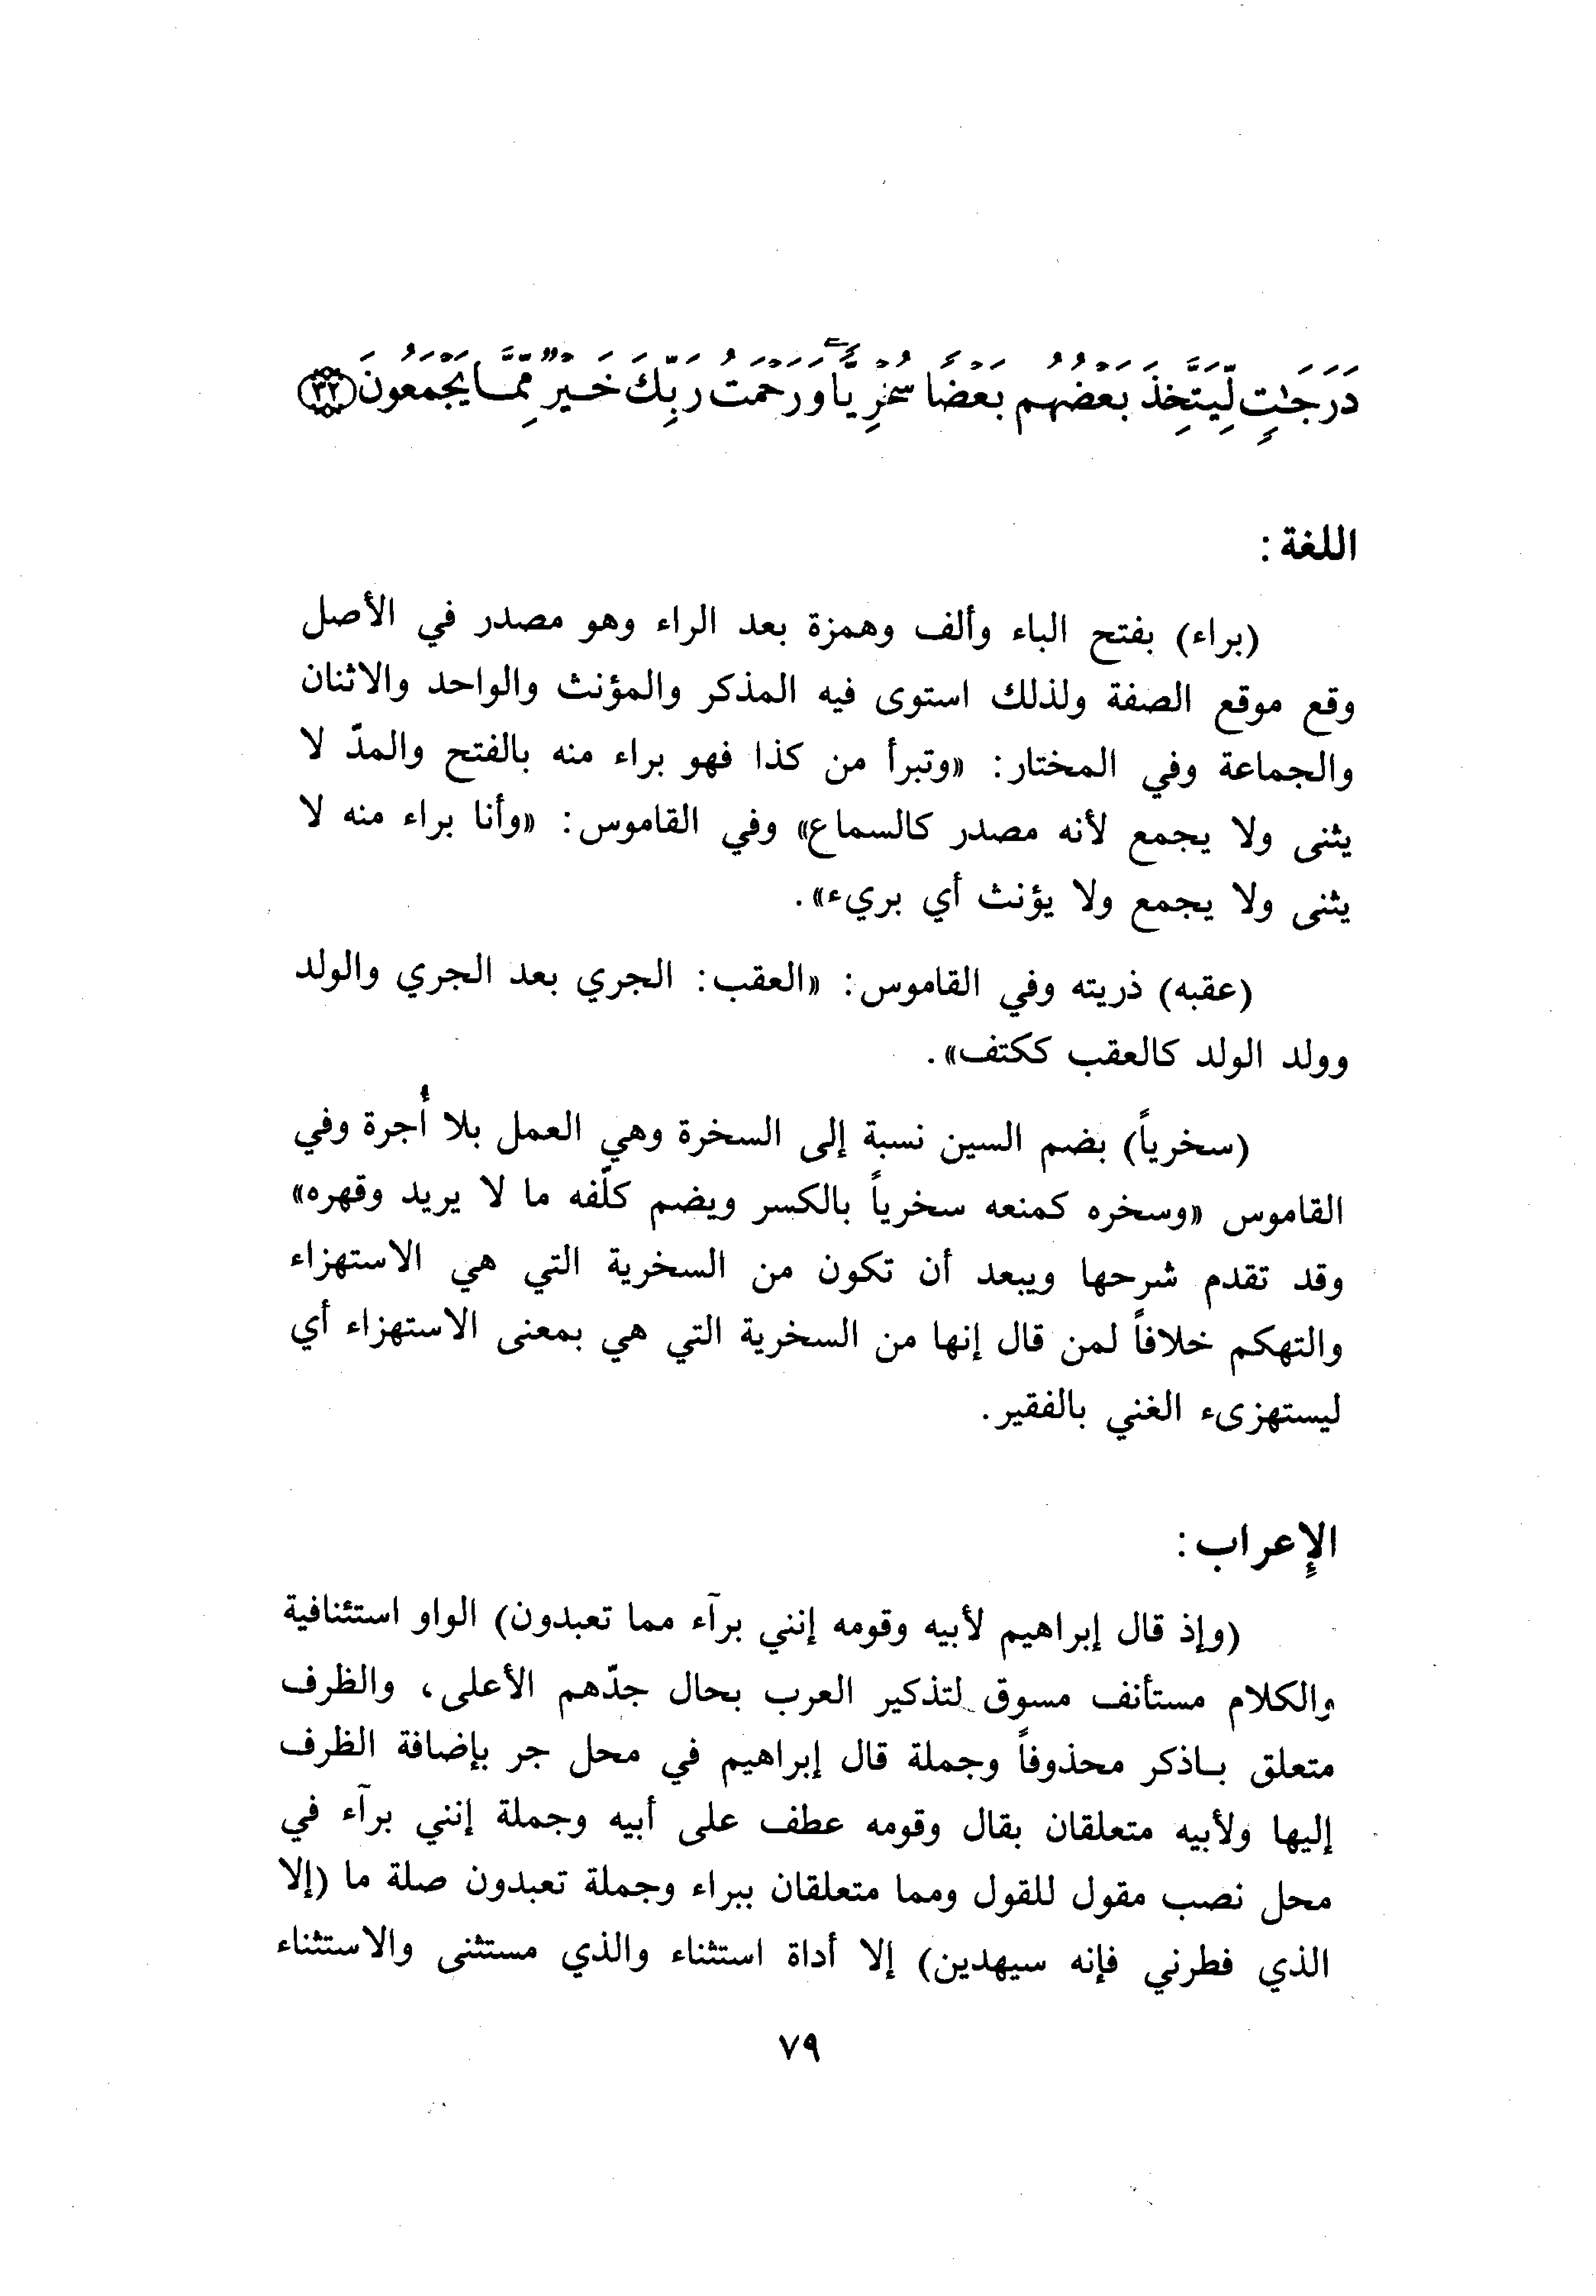 دَرَجَٰتٍ لِّيَتَّخِذَ بَعْضُهُم بَعْضًا سُخْرِيًّا وَرَحْمَتُ رَبِّكَ خَيْرٌ مِّمَّا يَجْمَعُونَ ٣٢
اللغة :
(براء) بفتح الباء وألف وهمزة بعد الراء وهو مصدر في الأصل
وقع موقع الصفة ولذلك استوى فيه المذكر والمؤنث والواحد والاثنان
والجماعة وفي المختار: «وتبرأ من كذا فهو براء منه بالفتح والمدّ لا
يثنى ولا يجمع لأنه مصدر كالسماع» وفي القاموس: «وأنا براء منه لا
يثنى ولا يجمع ولا يؤنث أي بريء» .
(عقبه) ذريته وفي القاموس: «العقب: الجري بعد الجري والولد
وولد الولد كالعقب ككتف» .
(سخرياً) بضم السين نسبة إلى السخرة وهي العمل بلا أُجرة وفي
القاموس «وسخره كمنعه سخرياً بالكسر ويضم كلّفه ما لا يريد وقهره»
وقد تقدم شرحها ويبعد أن تكون من السخرية التي هي الاستهزاء
والتهكم خلافاً لمن قال إنها من السخرية التي هي بمعنى الاستهزاء أي
ليستهزىء الغني بالفقير .
الإعراب :
(وإذ قال إبراهيم لأبيه وقومه إنني برآء مما تعبدون) الواو استئنافية
والكلام مستأنف مسوق لتذكير العرب بحال جدّهم الأعلى، والظرف
متعلق بـاذكر محذوفاً وجملة قال إبراهيم في محل جر بإضافة الظرف
إليها ولأبيه متعلقان بقال وقومه عطف على أبيه وجملة إنني برآء في
محل نصب مقول للقول ومما متعلقان ببراء وجملة تعبدون صلة ما (إلا
الذي فطرني فإنه سيهدين) إلا أداة استثناء والذي مستثنى والاستثناء
٧٩